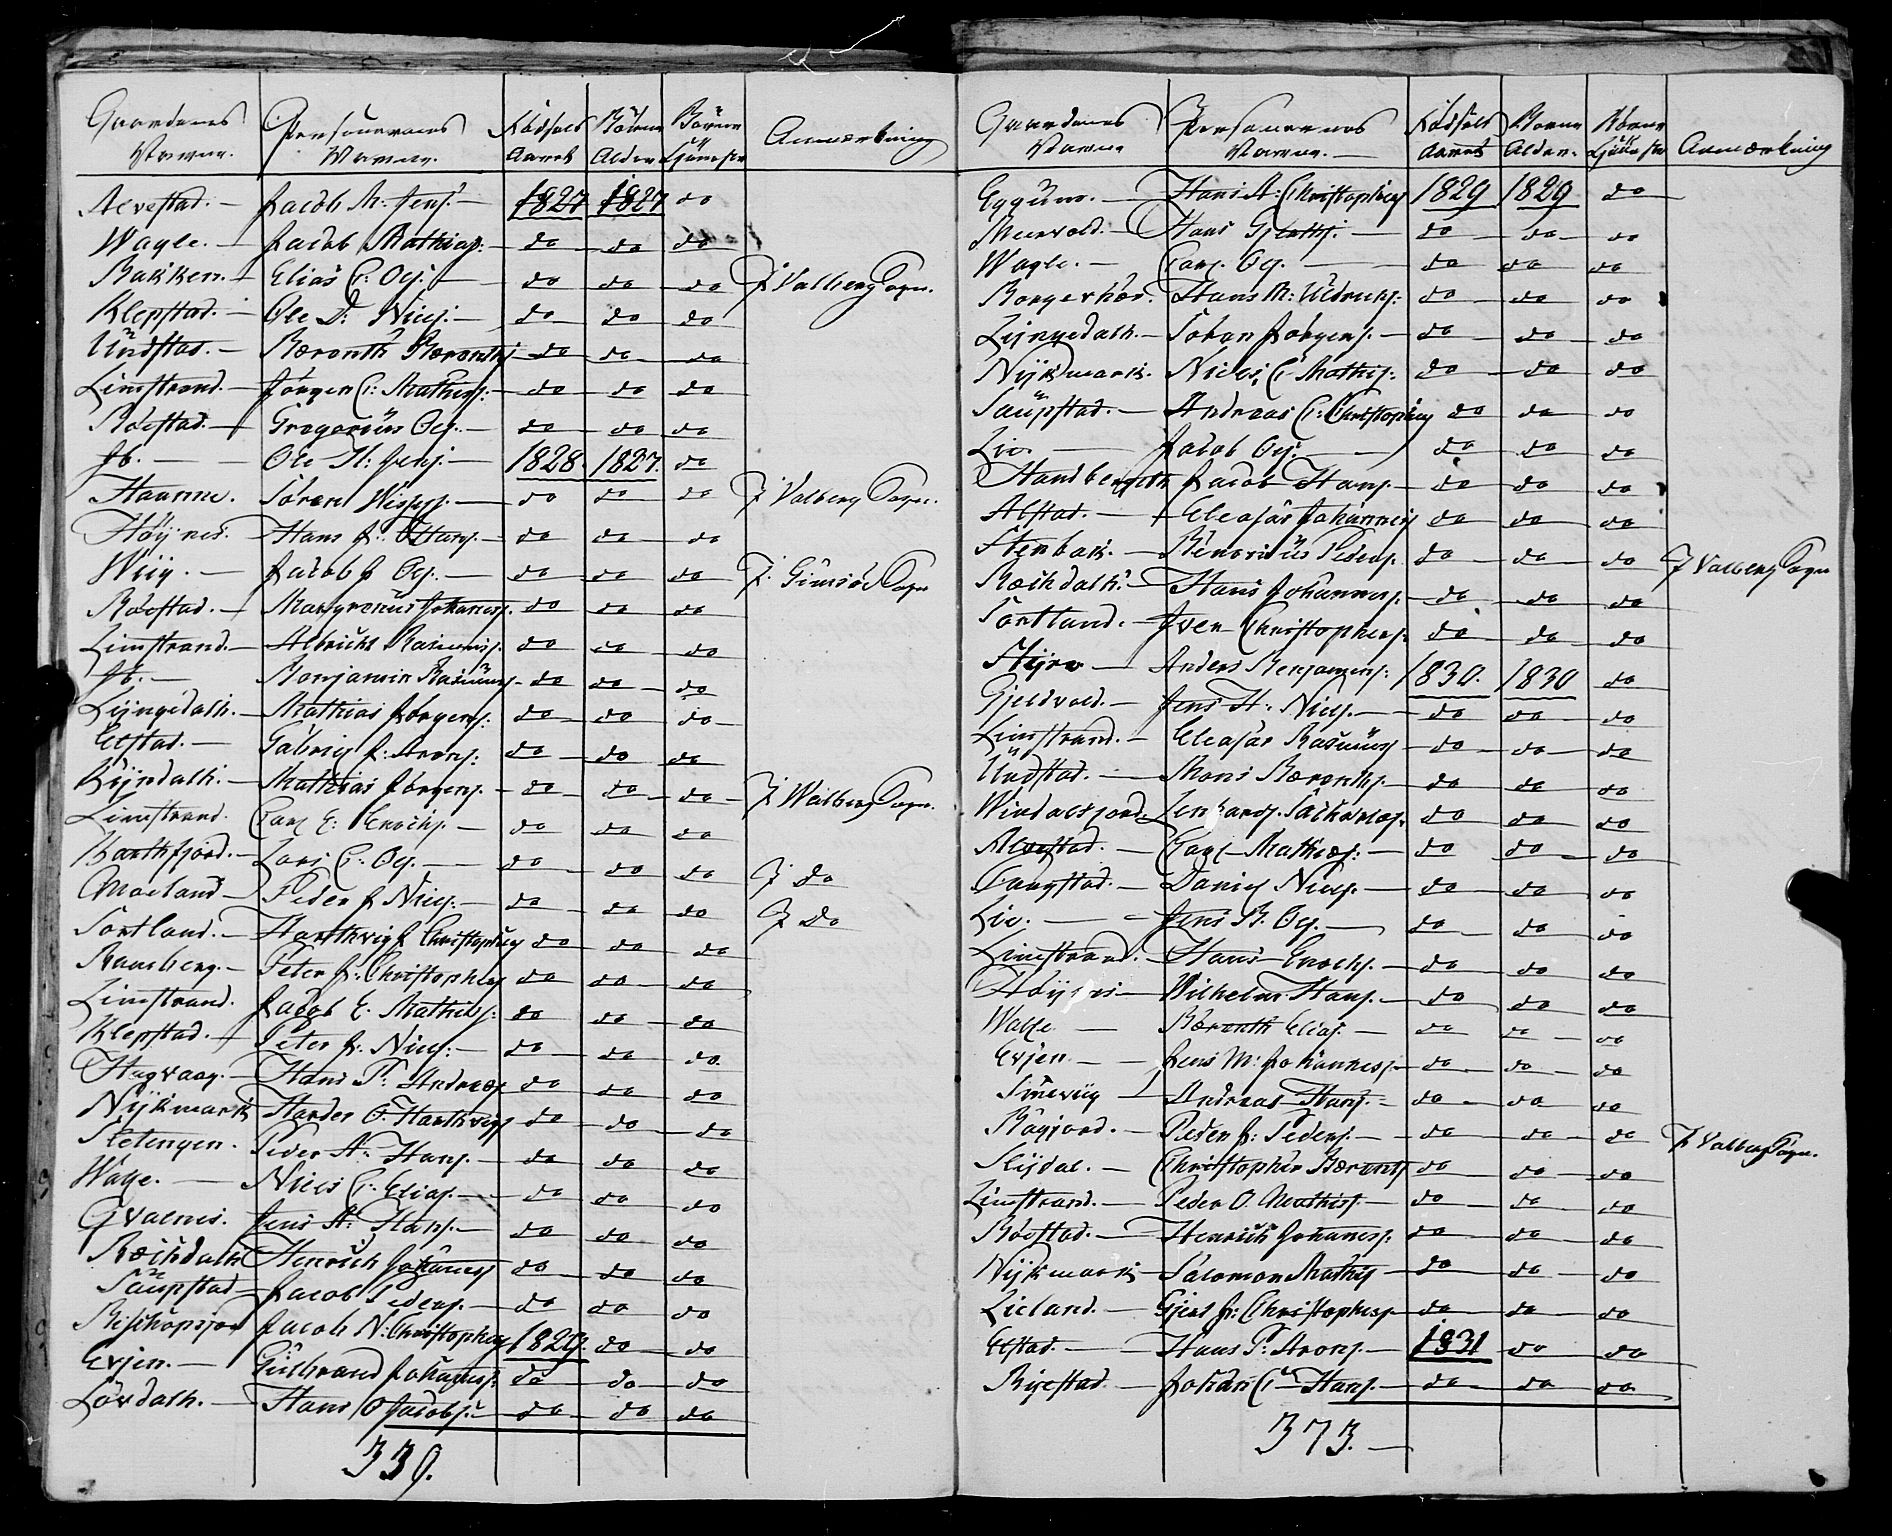 Gaardenes Navne. Personernes Navne. Fødsels Aaret Børne Alder Børne Anmærkning
Alvestad. Jacob M: Jens: 1827 1827 do
Wagle. Jacob Mathias: do do do
Bakken. Elias C: Ols: do do do I Valberg Sogn.
Klepstad. Ole D: Niels: do do do
Undstad. Berenth Berenths do do do
Limstrand. Jörgen C: Mathiss: do do do
Rölstad. Gregorius Ols. do do do
Ib. Ole H: Jens: 1828. 1827. do
Haanme. Sören Nilss: do do do I Valberg Sogn.
Höynes. Hans J: Hans. do do do
Wiig. Jacob J Ols. do do do I Gimsö Sogn
Rölstad. Margrenus Johanes. do do do
Limstrand. Albricht Rasmuss. do do do
Ib. Benjamin Rasmuss do do do
Lyngedalh. Mathias Jörgens: do do do
Elstad. Gabriel J: Arons: do do do
Rijsdalh. Mathias Jörgens. do do do I Walberg Sogn.
Limstrand. Carl E: Enochs. do do do
Barthfjord. Lars C: Ols. do do do I do
Moeland Peder J Niels. do do do I do
Sortland. Harthvig J Christophers do do do
Ramberg. Peter J: Christophers do do do
Limstrand. Jacob E. Mathiss: do do do
Klepstad. Peter J. Niels: do do do.
Hagvaag. Hans P: Andreas do do do
Nykmark Harder O. Harthvigs do do do
Sletengen. Peder A: Hans. do do do
Walle. Niels C: Elias. do do do
Qvalnes. Jens A: Hans. do do do
Reckdalh Henrich Johanes do do do
Saupstad Jacob Peders. do do do
Bischopsjor Jacob N: Christophers 1829. do do
Evjen. Gulbrand Johanes: do do do
Lövdalh. Hans O Jacobs: do do do
339.
Gaardenes Navne Personernes Navne. Fødsels Aaret Børne Alder. Børne Anmærkning
Eggum. Hans A: Christophers 1829 1829 do
Meervold. Hans do do do
Wagle. Carl Ols. do do do
Borgerhöe. Hans M: Uldricks: do do do
Lyngedalh. Sören Jörgens. do do do
Nykmark. Niels C Mathis: do do do
Saupstad. Andreas C: Christophers do do do
Lie. Jacob Ols: do do do
Jacob Hans. do do do
Alstad. Eleasar Johannes do do do
Stenbak. Benonius Peders. do do do I Valberg Sogn
Reckdalh. Hans Johannes: do do do
Sortland. Iver Christophers: do do do
Steyro Anders Benjamins: 1830. 1830 do
Gjeldvold. Jens H. Niels. do do do
Limstrand. Eleasar Rasmuss do do do
Undstad. Mons Berenths. do do do
Windalsjord. Lenhards. Sacharias. do do do
Alvestad. Carl Mathias: do do do
Daniel Niels. do do do
Lie. Jens B. Ols. do do do
Limstrand. Hans Enochs. do do do
Wilhelm Hans. do do do
Walle Berenth Elias. do do do
Evjen. Jens M: Johannes. do do do
Andreas Hans. do do do
Peder J: Peders. do do do I Valberg Sogn.
Slydal. Christopher Berents do do do
Limstrand. Peder O. Mathis. do do do
Rölstad. Henrich Johannes. do do do
Nykmark Salomon Mathis do do do
Lieland. Gjert J: Christophers. do do do
Elstad. Hans P: Arons. 1831 do do
Johan C Hans. do do do
373.